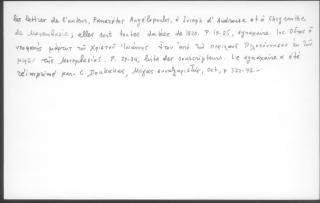 les lettres de l'auteur, Panarétos Angélopoulos, à Joseph d'Androusa et à Chrysanthe
de Monembasie; elles sont toutes datées de 1820. P. 19-25, synaxaire. Inc. Οὗτος ὁ
μάρτυς τοῦ Χριστοῦ Ἰωάννης ἦτον ἀπὸ τῶν Πελοπόννησον ἐκ τῶν
μερῶν τῆς Μονεμβασίας. P. 29-34, liste des souscripteurs. Le synaxaire a été
réimprimé par C. Doukakes, Μέγας συναξαριστής, Oct., p. 332-42.